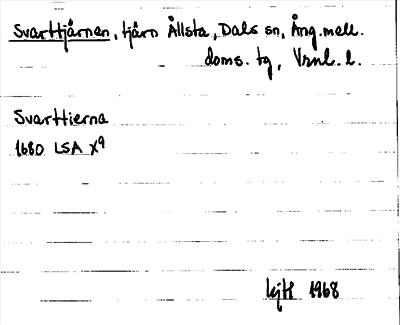 Svarttjärnen, tjärn Ållsta, Dals sn, Ång. mell.
doms. tg, Vrnl. l.
Svarttierna
1680 LSA X9
1968